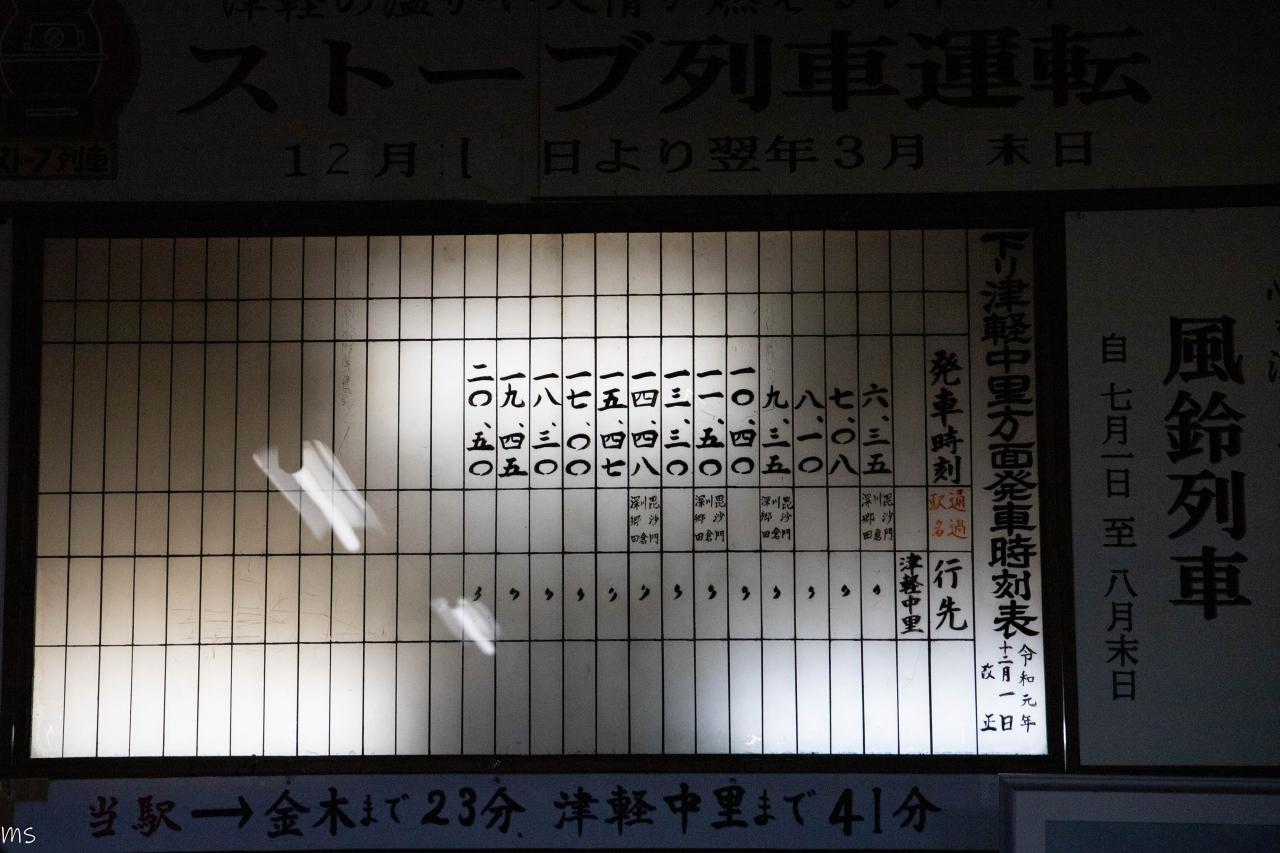 ストーブ列車運転
12月1日より翌年3月末日
ストーブ列車
下り津軽中里方面発車時刻表
令和元年
十二月一日
改正
発車時刻
通過駅名
行先
津軽中里
六、三五 毘沙門 川倉 深郷田 〃
七、〇八 〃
八、一〇 〃
九、三五 毘沙門 川倉 深郷田 〃
一〇、四〇 〃
一一、五〇 毘沙門 川倉 深郷田 〃
一三、三〇 〃
一四、四八 毘沙門 川倉 深郷田 〃
一五、四七 〃
一七、〇〇 〃
一八、三〇 〃
一九、四五 〃
二〇、五〇 〃
風鈴列車
自 七月一日 至 八月末日
当駅→金木まで23分、津軽中里まで41分
ms